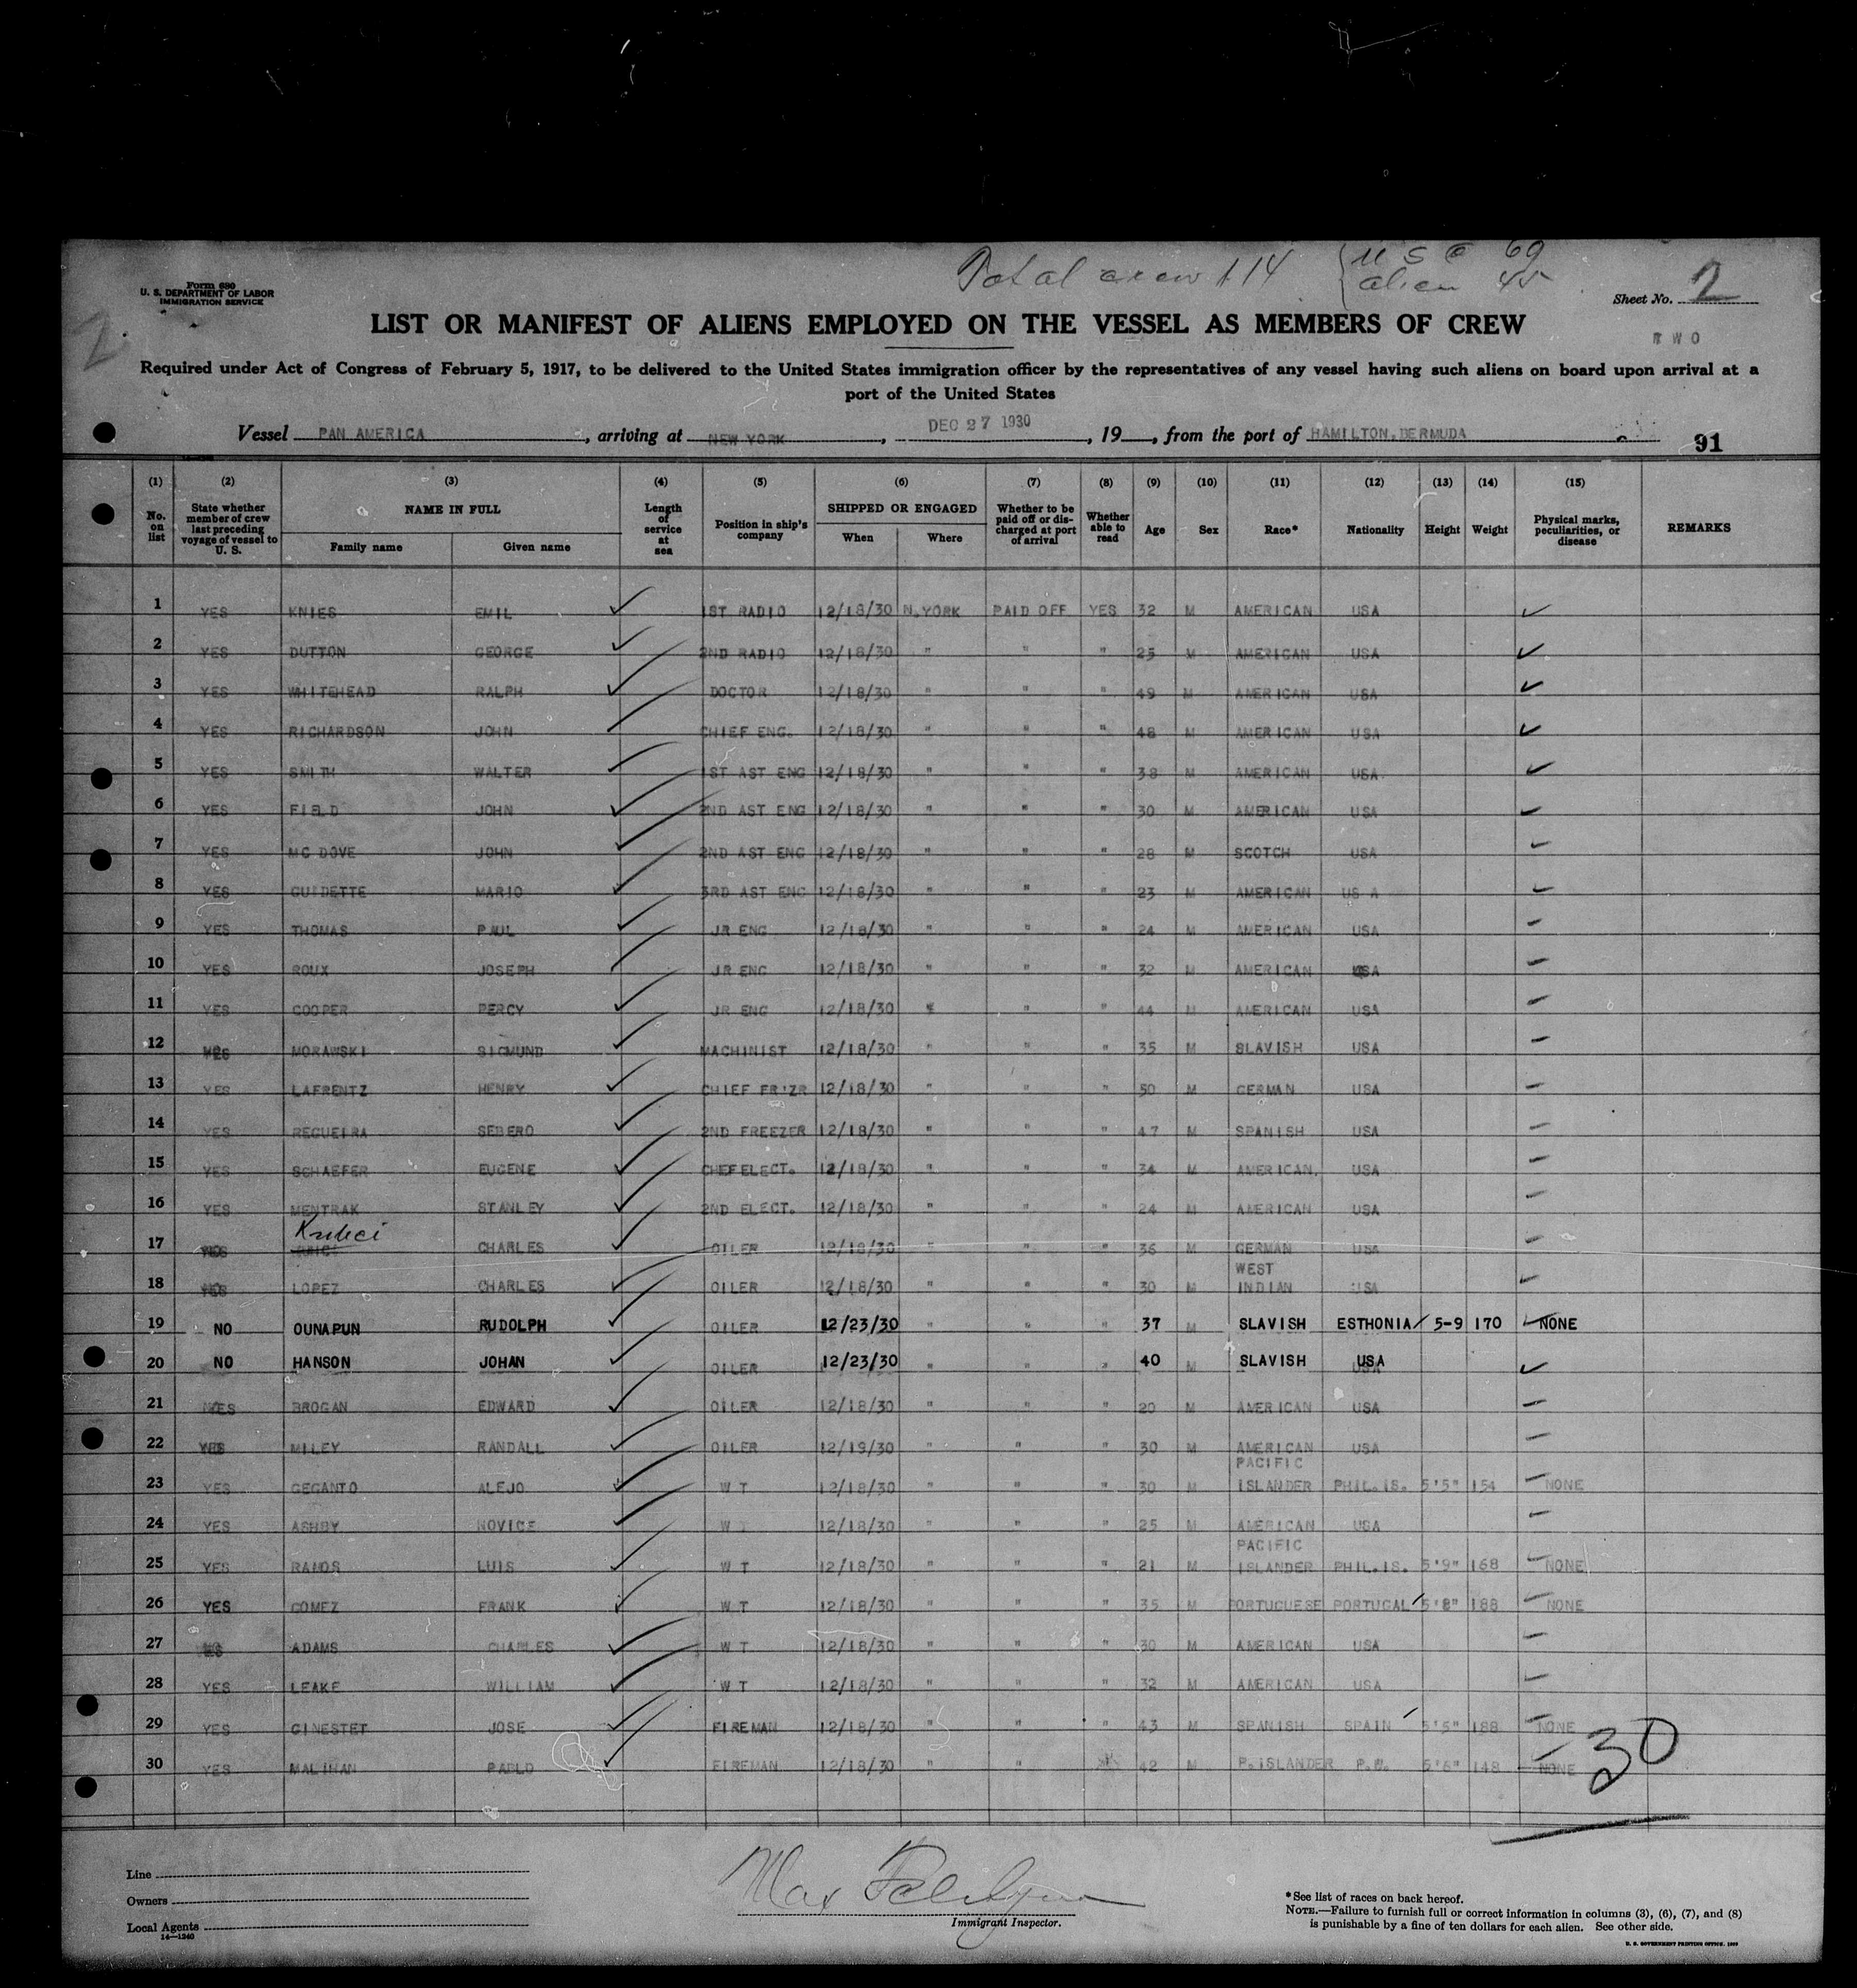 Total crew 114 { U S C 69
alien 45
Form 680
U. S. DEPARTMENT OF LABOR
IMMIGRATION SERVICE
Sheet No. 2
TWO
2
LIST OR MANIFEST OF ALIENS EMPLOYED ON THE VESSEL AS MEMBERS OF CREW
Required under Act of Congress of February 5, 1917, to be delivered to the United States immigration officer by the representatives of any vessel having such aliens on board upon arrival at a
port of the United States
Vessel PAN AMERICA, arriving at NEW YORK, DEC 27 1930, 19__, from the port of HAMILTON, BERMUDA 91
(1) (2) (3) (4) (5) (6) (7) (8) (9) (10) (11) (12) (13) (14) (15)
No. on list State whether member of crew last preceding voyage of vessel to U. S. NAME IN FULL Family name Given name Length of service at sea Position in ship's company SHIPPED OR ENGAGED When Where Whether to be paid off or discharged at port of arrival Whether able to read Age Sex Race* Nationality Height Weight Physical marks, peculiarities, or disease REMARKS
1 YES KNIES EMIL 1ST RADIO 12/18/30 N.YORK PAID OFF YES 32 M AMERICAN USA
2 YES DUTTON GEORGE 2ND RADIO 12/18/30 " " " 25 M AMERICAN USA
3 YES WHITEHEAD RALPH DOCTOR 12/18/30 " " " 49 M AMERICAN USA
4 YES RICHARDSON JOHN CHIEF ENG. 12/18/30 " " " 48 M AMERICAN USA
5 YES SMITH WALTER 1ST AST ENG 12/18/30 " " " 38 M AMERICAN USA
6 YES FIELD JOHN 2ND AST ENG 12/18/30 " " " 30 M AMERICAN USA
7 YES MC DOVE JOHN 2ND AST ENG 12/18/30 " " " 28 M SCOTCH USA
8 YES GUIDETTE MARIO 3RD AST ENG 12/18/30 " " " 23 M AMERICAN US A
9 YES THOMAS PAUL JR ENG 12/18/30 " " " 24 M AMERICAN USA
10 YES ROUX JOSEPH JR ENG 12/18/30 " " " 32 M AMERICAN USA
11 YES COOPER PERCY JR ENG 12/18/30 " " " 44 M AMERICAN USA
12 YES MORAWSKI SIGMUND MACHINIST 12/18/30 " " " 35 M SLAVISH USA
13 YES LAFRENTZ HENRY CHIEF FR'ZR 12/18/30 " " " 50 M GERMAN USA
14 YES REGUEIRA SEBERO 2ND FREEZER 12/18/30 " " " 47 M SPANISH USA
15 YES SCHAEFER EUGENE CHEF ELECT. 12/18/30 " " " 34 M AMERICAN. USA
16 YES MENTRAK STANLEY 2ND ELECT. 12/18/30 " " " 24 M AMERICAN USA
17 CHARLES OILER 12/18/30 " " " 36 M GERMAN USA
18 LOPEZ CHARLES OILER 12/18/30 " " " 30 M WEST INDIAN USA
19 NO OUNAPUN RUDOLPH OILER 12/23/30 " " " 37 M SLAVISH ESTHONIA 5-9 170 NONE
20 NO HANSON JOHAN OILER 12/23/30 " " " 40 M SLAVISH USA
21 YES BROGAN EDWARD OILER 12/18/30 " " " 20 M AMERICAN USA
22 YES MILEY RANDALL OILER 12/19/30 " " " 30 M AMERICAN USA
23 YES GEGANTO ALEJO W T 12/18/30 " " " 30 M PACIFIC ISLANDER PHIL.IS. 5'5" 154 NONE
24 YES ASHBY NOVICE W T 12/18/30 " " " 25 M AMERICAN USA
25 YES RAMOS LUIS W T 12/18/30 " " " 21 M PACIFIC ISLANDER PHIL.IS. 5'9" 168 NONE
26 YES GOMEZ FRANK W T 12/18/30 " " " 35 M PORTUGUESE PORTUGAL 5'8" 188 NONE
27 ADAMS CHARLES W T 12/18/30 " " " 30 M AMERICAN USA
28 YES LEAKE WILLIAM W T 12/18/30 " " " 32 M AMERICAN USA
29 YES GINESTET JOSE FIREMAN 12/18/30 " " " 43 M SPANISH SPAIN 5'5" 188 NONE
30 YES MALIHAN PABLO FIREMAN 12/18/30 " " 42 M P.ISLANDER 5'6" 148 NONE
30
Line
Owners
Local Agents
14—1240
Max
Immigrant Inspector.
*See list of races on back hereof.
NOTE.—Failure to furnish full or correct information in columns (3), (6), (7), and (8)
is punishable by a fine of ten dollars for each alien. See other side.